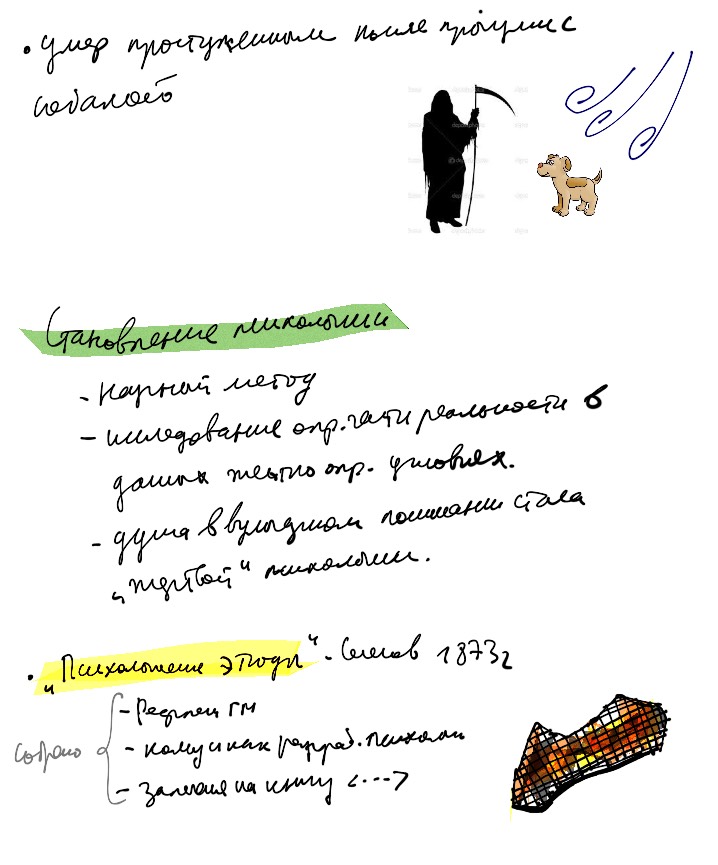 • умер простуженным после прогулки с
собакой
Становление психологии
- научный метод
- исследование опр. части реальности в
данных жестко опр. условиях.
- душа в вульгарном понимании стала
"жертвой" психологии.
• "Психологические этюды" - Сеченов 1873г
собрано
- Рефлексы ГМ
- кому и как разраб. психологию
- замечания на книгу <--->